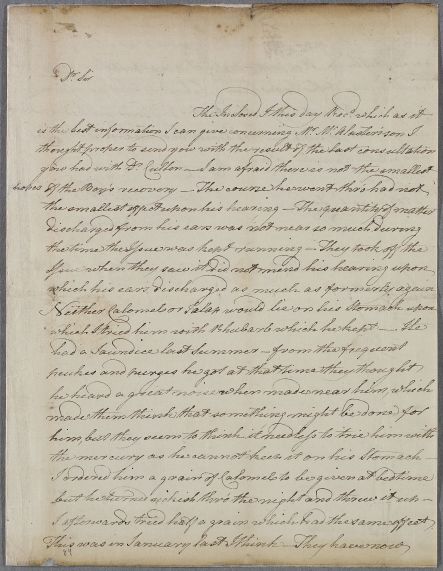 Dr Sir
The Inclosed I this day Recd. which as it
is the best information I can give concerning Mr. I
thought proper to send you with the result of the last consultation
you had with Dr. Cullen — I am afraid there is not the smallest
hopes of the Boy's recovery — The course he went thro had not
the smallest effect upon his hearing — The quantity of matter
discharged from his ears was not near so much during
the time the Issue was kept running — They took of the
Issue when they saw it did not mend his hearing upon
which his ears discharged as much as formerly again
Neither Calomel or Jalap would lie on his Stomach upon
which I tried him with Rhubarb which he kept — He
had a Jaundice last Summer — from the frequent
pukes and purges he got at that time they thought
he heard a great noise when made near him, which
made them think that something might be done for
him, but they seem to think it needless to trie him with
the mercury as he cannot keep it on his Stomach —
I ordered him a grain of Calomel to be given at bedtime
but he turned sickish thro the night and threw it up —
I afterwards tried half a grain which had the same effect,
This was in January last I think — They have now
84